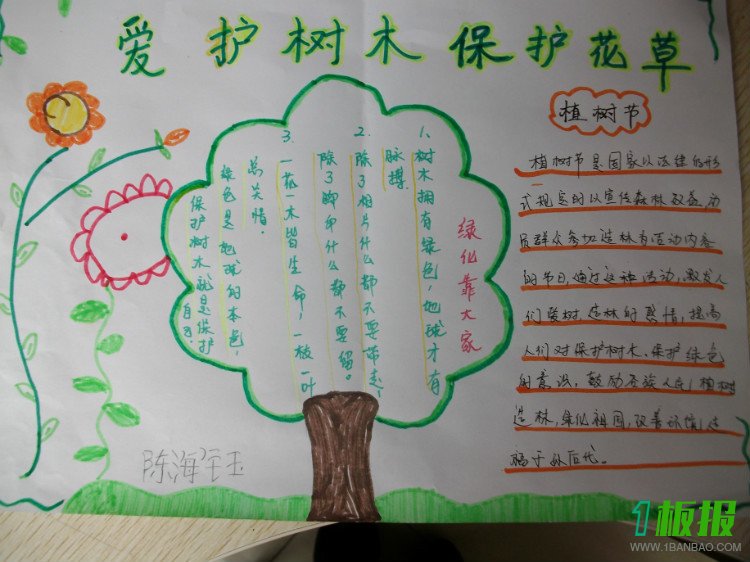 爱护树木 保护花草
绿化靠大家
1、树木拥有绿色,地球才有
脉搏
2、除了相片什么都不要带走,
除了脚印什么都不要留。
3、一花一木皆生命,一枝一叶
总关情。
绿色是地球的本色,
保护树木就是保护
自己。
植树节
植树节是国家以法律的形
式规定的以宣传森林效益,动
员群众参加造林为活动内容
的节日,通过这种活动,激发人
们爱树造林的热情,提高
人们对保护树木、保护绿色
的意识,鼓励各族人民,植树
造林,绿化祖国,改善环境,造
福子孙后代。
陈海宝玉
1板报
WWW.1BANBAO.COM